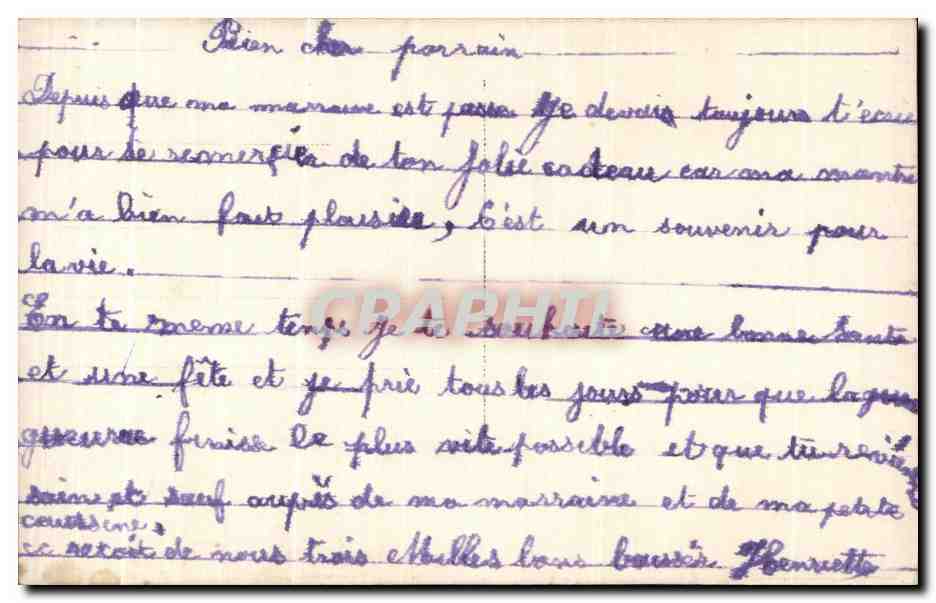 Bien cher parrain
Depuis que ma marraine est passe Je devais toujours t'ecrie
pour te remercier de ton Jolie cadeau car ma montre
m'a bien fait plaisire, C'est un souvenir pour
la vie.
CRAPHTI
En te meme temps je te souhaite une bonne sante
et une fête et je prie tous les jours pour que la
guerre finise le plus vite possible et que tu
sain et seuf auprès de ma marraine et de ma petite
coussine.
recoit de nous trois Milles bons Henriette